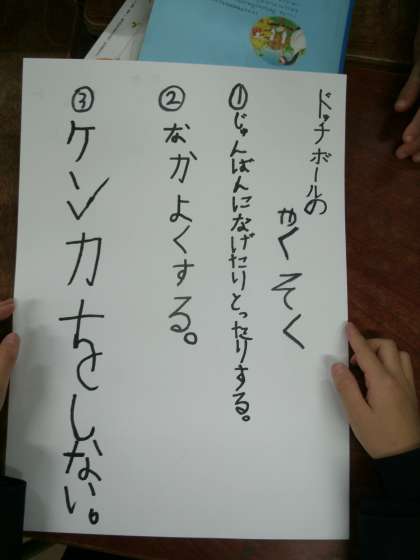 ドッチボールの
やくそく
①じゅんばんになげたりとったりする。
②なかよくする。
③ケンカをしない。